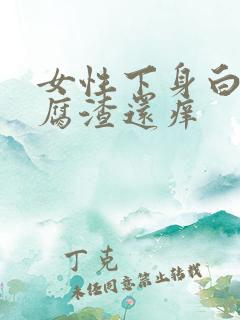 女性下身白
腐渣还痒
丁克
未经同意禁止转载